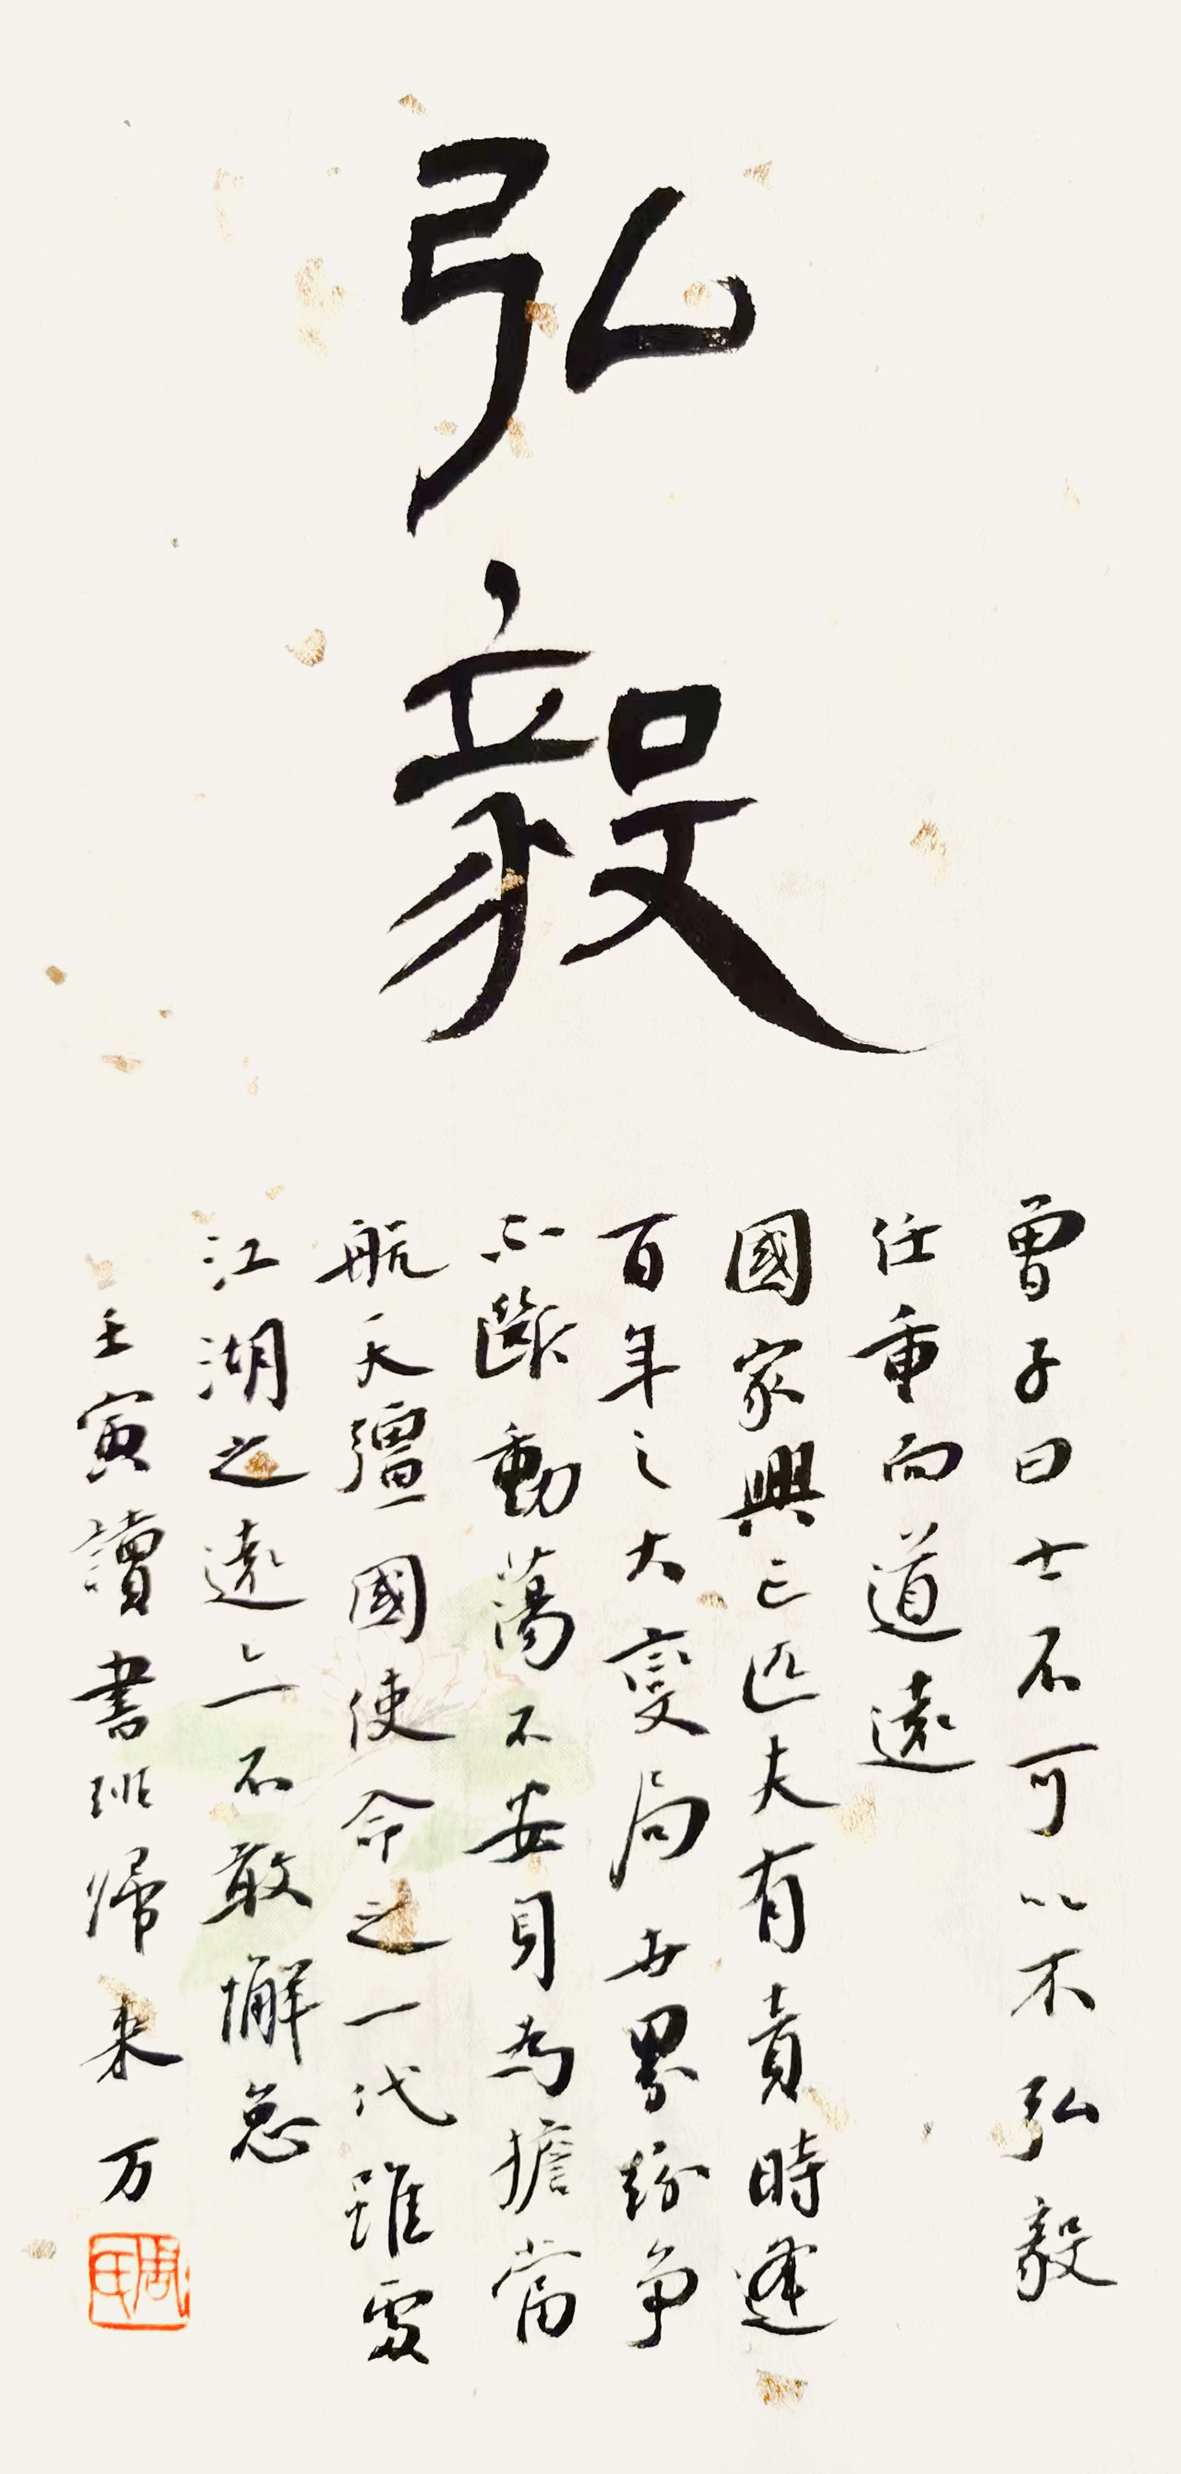 弘毅
曾子曰士不可以不弘毅
任重而道遠
國家興亡匹夫有責時逢
百年之大變局世界紛争
不斷動蕩不安自為擔當
航天彊國使命之一代雖處
江湖之遠亦不敢懈怠
壬寅讀書班歸来 万